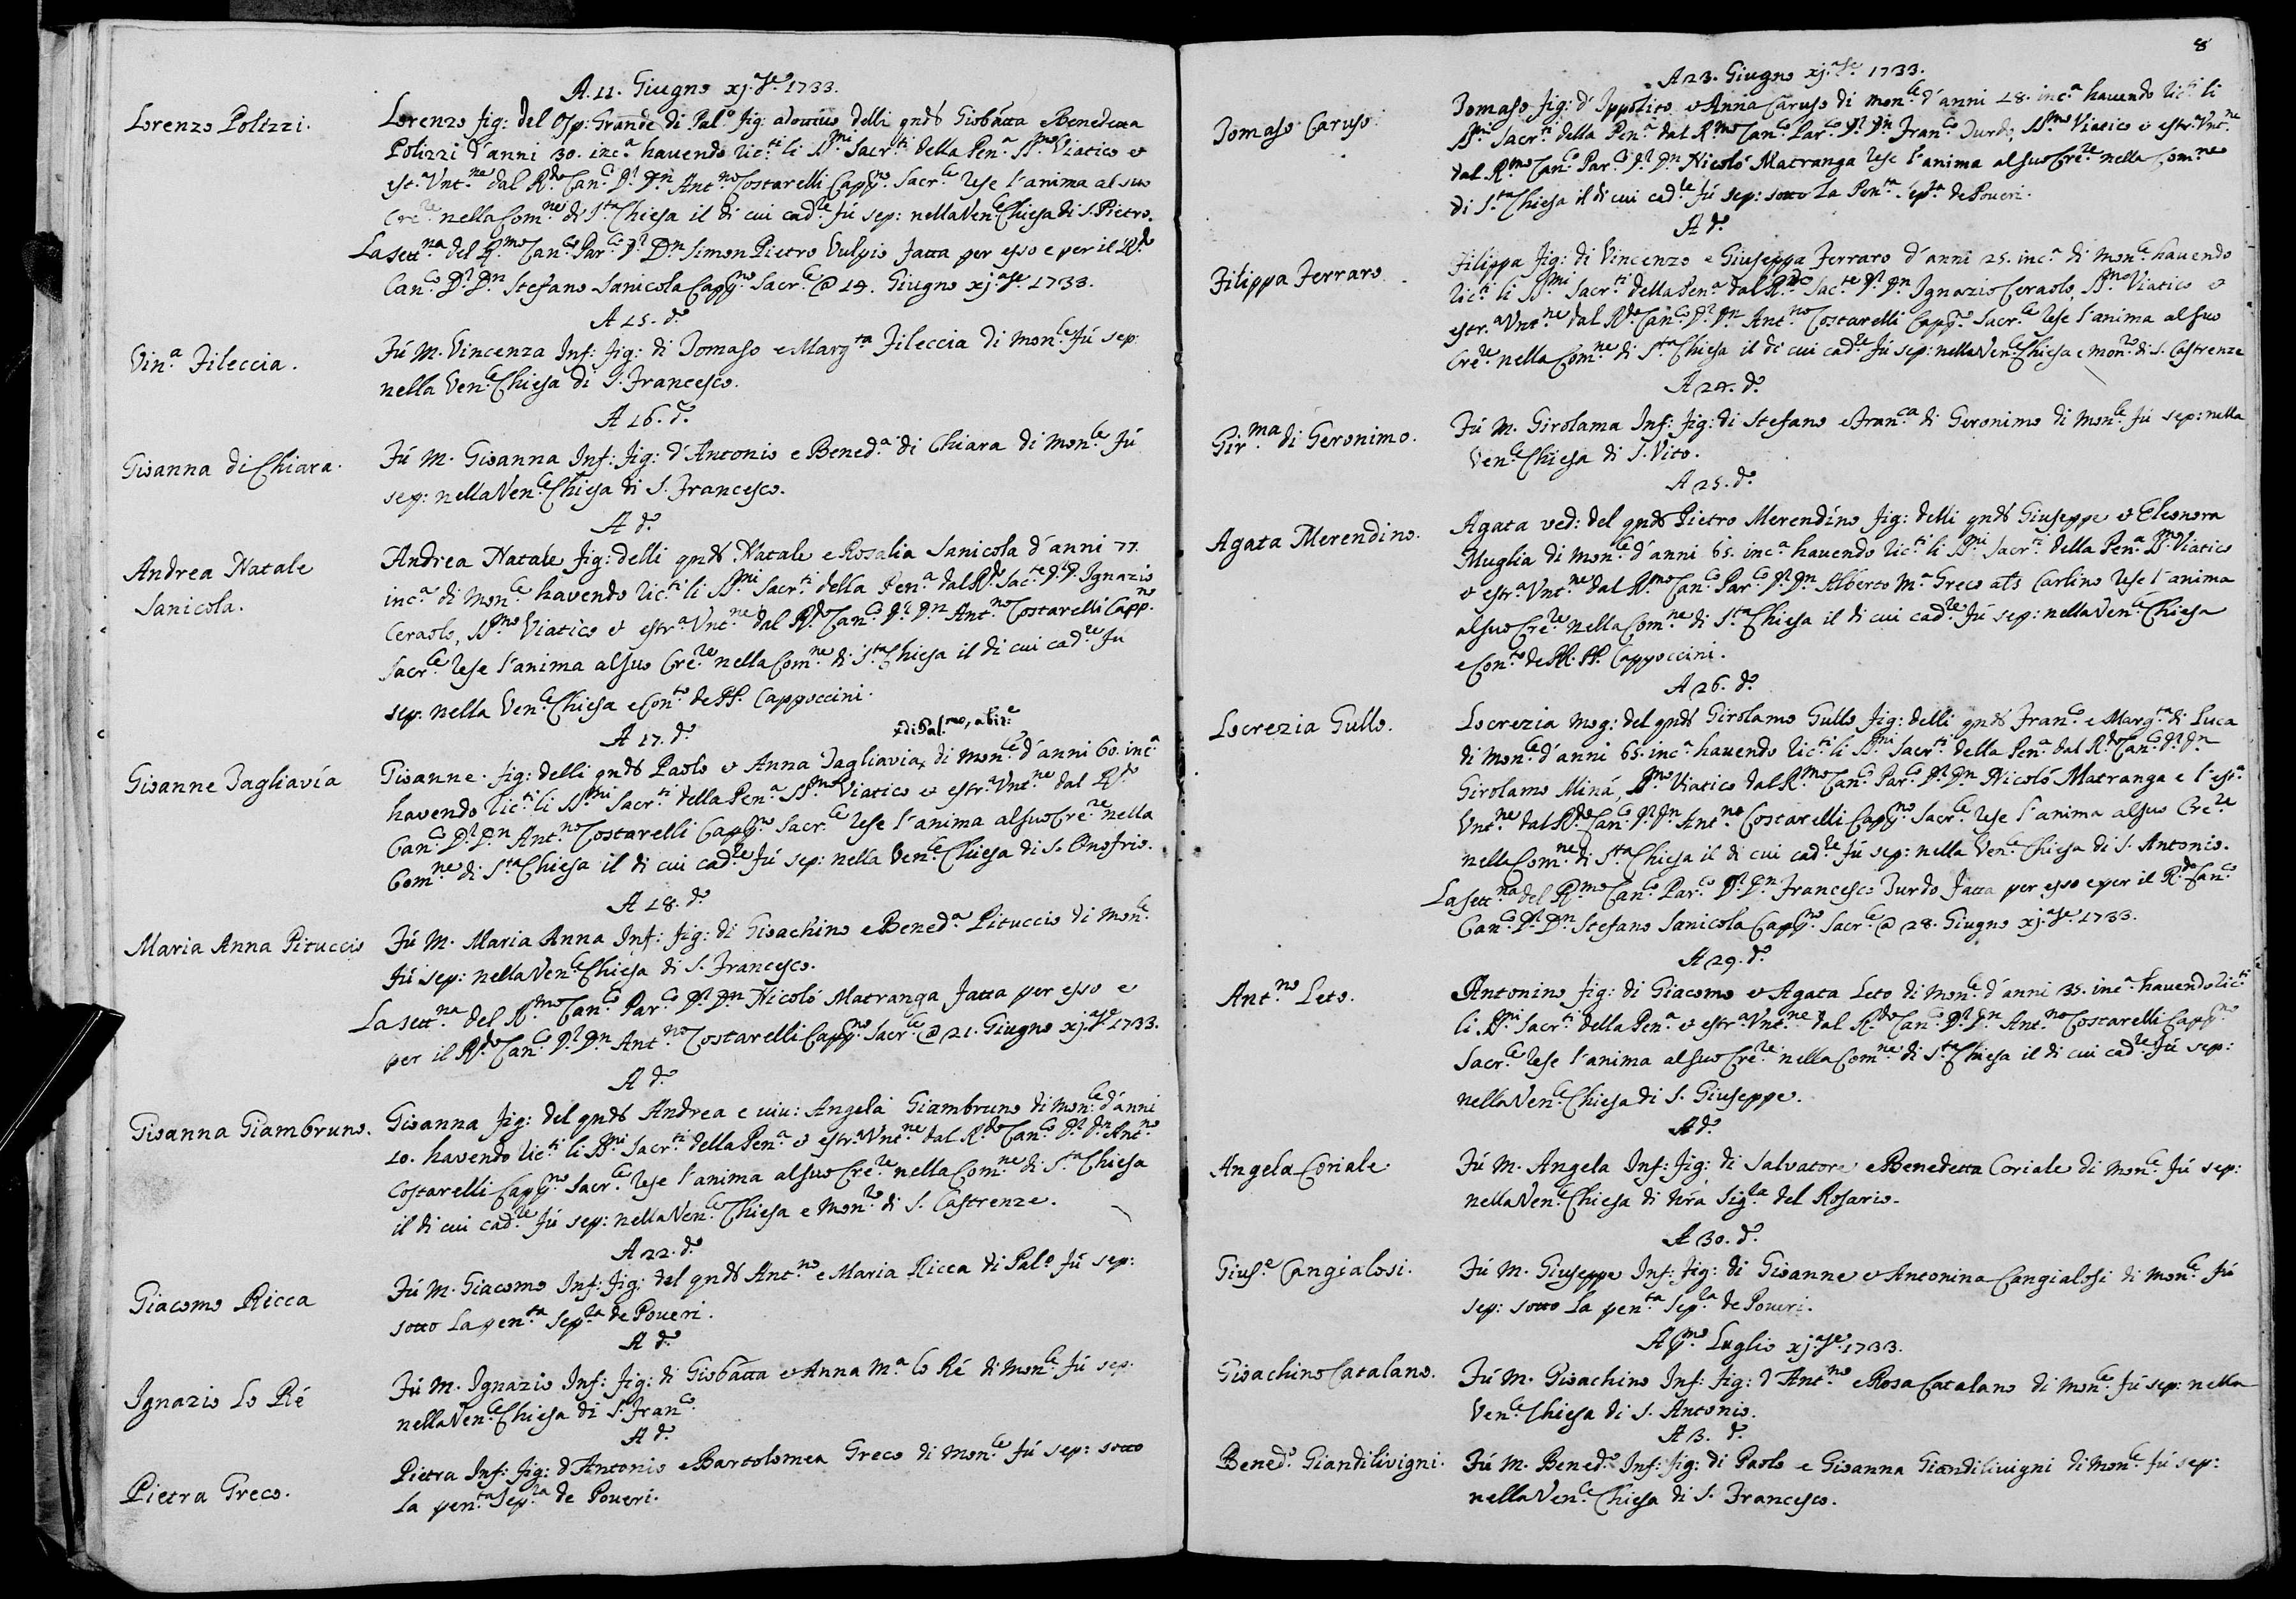 A. 11. Giugno xj.ae 1733.
Lorenzo Polizzi.
Lorenzo fig: del Osp: Grande di Pal.o fig: adottivo delli qnd Giobatta e Benedetta
Polizzi d'anni 30. inc.a havendo ric.ti li SS.mi Sacr.ti della Pen.a SS.mo Viatico et
est.a Vnt.ne dal R.do Can.co D.r Dn Ant.no Costarelli Capp.no Sacr.le rese l'anima al suo
Cre.re nella Com.ne di S.ta Chiesa il di cui cad.re fú sep: nella Ven.le Chiesa di S. Pietro.
La sett.na del R.mo Can.co Par.co D.r Dn Simon Pietro Vulpio fatta per esso e per il R.do
Can.co D.r Dn Stefano Sanicola Capp.no Sacr.le @ 14. Giugno xj.ae 1733.
A 15. d.o
Vin.a Fileccia.
Fú M. Vincenza Inf: fig: di Tomaso e Marg.ta Fileccia di Mon.le fú sep:
nella Ven.le Chiesa di S. Francesco.
A 16. d.o
Gioanna di Chiara.
Fú M. Gioanna Inf: fig: d'Antonio e Bened.a di Chiara di Mon.le fú
sep: nella Ven.le Chiesa di S. Francesco.
A d.o
Andrea Natale
Sanicola.
Andrea Natale fig: delli qnd Natale e Rosalia Sanicola d'anni 77.
inc.a di Mon.le havendo ric.ti li SS.mi Sacr.ti della Pen.a dal R.do Sac.te D. D. Ignazio
Ceraolo, SS.mo Viatico et estr.a Vnt.ne dal R.do Can.co D.r Dn Ant.no Costarelli Capp.no
Sacr.le rese l'anima al suo Cre.re nella Com.ne di S.ta Chiesa il di cui cad.re fu
sep: nella Ven.le Chiesa e Con.to de PP. Cappoccini.
A 17. d.o
x di Pal.mo, abit.e
Gioanne Tagliavia
Gioanne fig: delli qnd Paolo et Anna Tagliavia x di Mon.le d'anni 60. inc.a
havendo ric.ti li SS.mi Sacr.ti della Pen.a SS.mo Viatico et estr.a Vnt.ne dal R.do
Can.co D.r Dn Ant.no Costarelli Capp.no Sacr.le rese l'anima al suo Cre.re nella
Com.ne di S.ta Chiesa il di cui cad.re fú sep: nella Ven.le Chiesa di S. Onofrio.
A 18. d.o
Maria Anna Pituccio
Fú M. Maria Anna Inf: fig: di Gioachino e Bened.a Pituccio di Mon.le
fú sep: nella Ven.le Chiesa di S. Francesco.
La sett.na del R.mo Can.co Par.co D.r Dn Nicoló Matranga fatta per esso e
per il R.do Can.co D.r Dn Ant.no Costarelli Capp.no Sacr.le @ 21. Giugno xj.ae 1733.
A d.o
Gioanna Giambruno.
Gioanna fig: del qnd Andrea e viv: Angela Giambruno di Mon.le d'anni
10. havendo ric.ti li SS.mi Sacr.ti della Pen.a et estr.a Vnt.ne dal R.do Can.co D.r Dn Ant.no
Costarelli Capp.no Sacr.le rese l'anima al suo Cre.re nella Com.ne di S.ta Chiesa
il di cui cad.re fú sep: nella Ven.le Chiesa e Mon.ro di S. Castrenze.
A 22. d.o
Giacomo Ricca
Fú M. Giacomo Inf: fig: del qnd Ant.no e Maria Ricca di Pal.o fú sep:
sotto la pen.ta sep.ra de Poveri.
A d.o
Ignazio Lo Ré
Fú M. Ignazio Inf: fig: di Giobatta et Anna M.a lo Ré di Mon.le fú sep:
nella Ven.le Chiesa di S. Fran.co
A d.o
Pietra Greco.
Pietra Inf: fig: d'Antonio e Bartolomea Greco di Mon.le fú sep: sotto
la pen.ta sep.ra de Poveri.
8
A 23. Giugno xj.ae 1733.
Tomaso Caruso.
Tomaso fig: d'Ippolito et Anna Caruso di Mon.le d'anni 18. inc.a havendo ric.ti li
SS.mi Sacr.ti della Pen.a dal R.mo Can.co Par.co D.r Dn Fran.co Turdo, SS.mo Viatico et estr.a Vnt.ne
dal R.mo Can.co Par.co D.r Dn Nicoló Matranga rese l'anima al suo Cre.re nella Com.ne
di S.ta Chiesa il di cui cad.re fú sep: sotto la Pen.ta Sep.ra de Poveri.
A d.o
Filippa Ferraro
Filippa fig: di Vincenzo e Giuseppa Ferraro d'anni 25. inc.a di Mon.le havendo
ric.ti li SS.mi Sacr.ti della Pen.a dal R.do Sac.te D.r Dn Ignazio Ceraolo, SS.mo Viatico et
estr.a Vnt.ne dal R.do Can.co D.r Dn Ant.no Costarelli Capp.no Sacr.le rese l'anima al suo
Cre.re nella Com.ne di S.ta Chiesa il di cui cad.re fú sep: nella Ven.le Chiesa e Mon.ro di S. Castrenze
A 24. d.o
Gir.ma di Geronimo.
Fú M. Girolama Inf: fig: di Stefano e Fran.ca di Geronimo di Mon.le fú sep: nella
Ven.le Chiesa di S. Vito.
A 25. d.o
Agata Merendino.
Agata ved: del qnd Pietro Merendino fig: delli qnd Giuseppe et Eleonora
Muglia di Mon.le d'anni 65. inc.a havendo ric.ti li SS.mi Sacr.ti della Pen.a SS.mo Viatico
et estr.a Vnt.ne dal R.mo Can.co Par.co D.r Dn Alberto M.a Greco als Carlino rese l'anima
al suo Cre.re nella Com.ne di S.ta Chiesa il di cui cad.re fú sep: nella Ven.le Chiesa
e Con.to de RR. PP. Cappoccini.
A 26. d.o
Locrezia Gullo.
Locrezia mog: del qnd Girolamo Gullo fig: delli qnd Fran.co e Marg.ta di Luca
di Mon.le d'anni 65. inc.a havendo ric.ti li SS.mi Sacr.ti della Pen.a dal R.do Can.co D.r Dn
Girolamo Miná, SS.mo Viatico dal R.mo Can.co Par.co D.r Dn Nicoló Matranga e l'est.a
Vnt.ne dal R.do Can.co D.r Dn Ant.no Costarelli Capp.no Sacr.le rese l'anima al suo Cre.re
nella Com.ne di S.ta Chiesa il di cui cad.re fú sep: nella Ven.le Chiesa di S. Antonio.
La sett.na del R.mo Can.co Par.co D.r Dn Francesco Turdo fatta per esso e per il R.do Can.co
Can.co D.r Dn Stefano Sanicola Capp.no Sacr.le @ 28. Giugno xj.ae 1733.
A 29. d.o
Ant.no Leto.
Antonino fig: di Giacomo et Agata Leto di Mon.le d'anni 35. inc.a havendo ric.ti
li SS.mi Sacr.ti della Pen.a et estr.a Vnt.ne dal R.do Can.co D.r Dn Ant.no Costarelli Capp.no
Sacr.le rese l'anima al suo Cre.re nella Com.ne di S.ta Chiesa il di cui cad.re fú sep:
nella Ven.le Chiesa di S. Giuseppe.
A d.o
Angela Coriale
Fú M. Angela Inf: fig: di Salvatore e Benedetta Coriale di Mon.le fú sep:
nella Ven.le Chiesa di Nra Sig.ra del Rosario.
A 30. d.o
Gius.e Cangialosi.
Fú M. Giuseppe Inf: fig: di Gioanne et Antonina Cangialosi di Mon.le fú
sep: sotto la pen.ta sep.ra de Poveri.
A p.mo Luglio xj.ae 1733.
Gioachino Catalano.
Fú M. Gioachino Inf: fig: d'Ant.no e Rosa Catalano di Mon.le fú sep: nella
Ven.le Chiesa di S. Antonio.
A 3. d.o
Bened.o Giandilivigni.
Fú M. Bened.o Inf: fig: di Paolo e Gioanna Giandilivigni di Mon.le fú sep:
nella Ven.le Chiesa di S. Francesco.